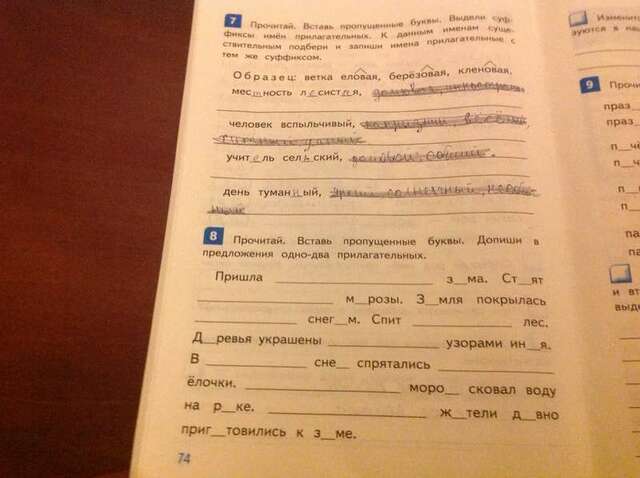 7 Прочитай. Вставь пропущенные буквы. Выдели суф-
фиксы имён прилагательных. К данным именам суще-
ствительным подбери и запиши имена прилагательные с
тем же суффиксом.
Образец: ветка еловая, берёзовая, кленовая,
местность лесистая,
человек вспыльчивый,
учитель сельский,
день туманный,
8 Прочитай. Вставь пропущенные буквы. Допиши в
предложения одно-два прилагательных.
Пришла ____ з__ма. Ст__ят
____ м__розы. З__мля покрылась
____ снег__м. Спит ____ лес.
Д__ревья украшены ____ узорами ин__я.
В ____ сне__ спрятались ____
ёлочки. ____ моро__ сковал воду
на р__ке. ____ ж__тели д__вно
приг__товились к з__ме.
74
Измени
зуются в наш
9 Прочи
праз_
праз_
п_чё
п_ч
п_
п_
па
па
и вт
выде